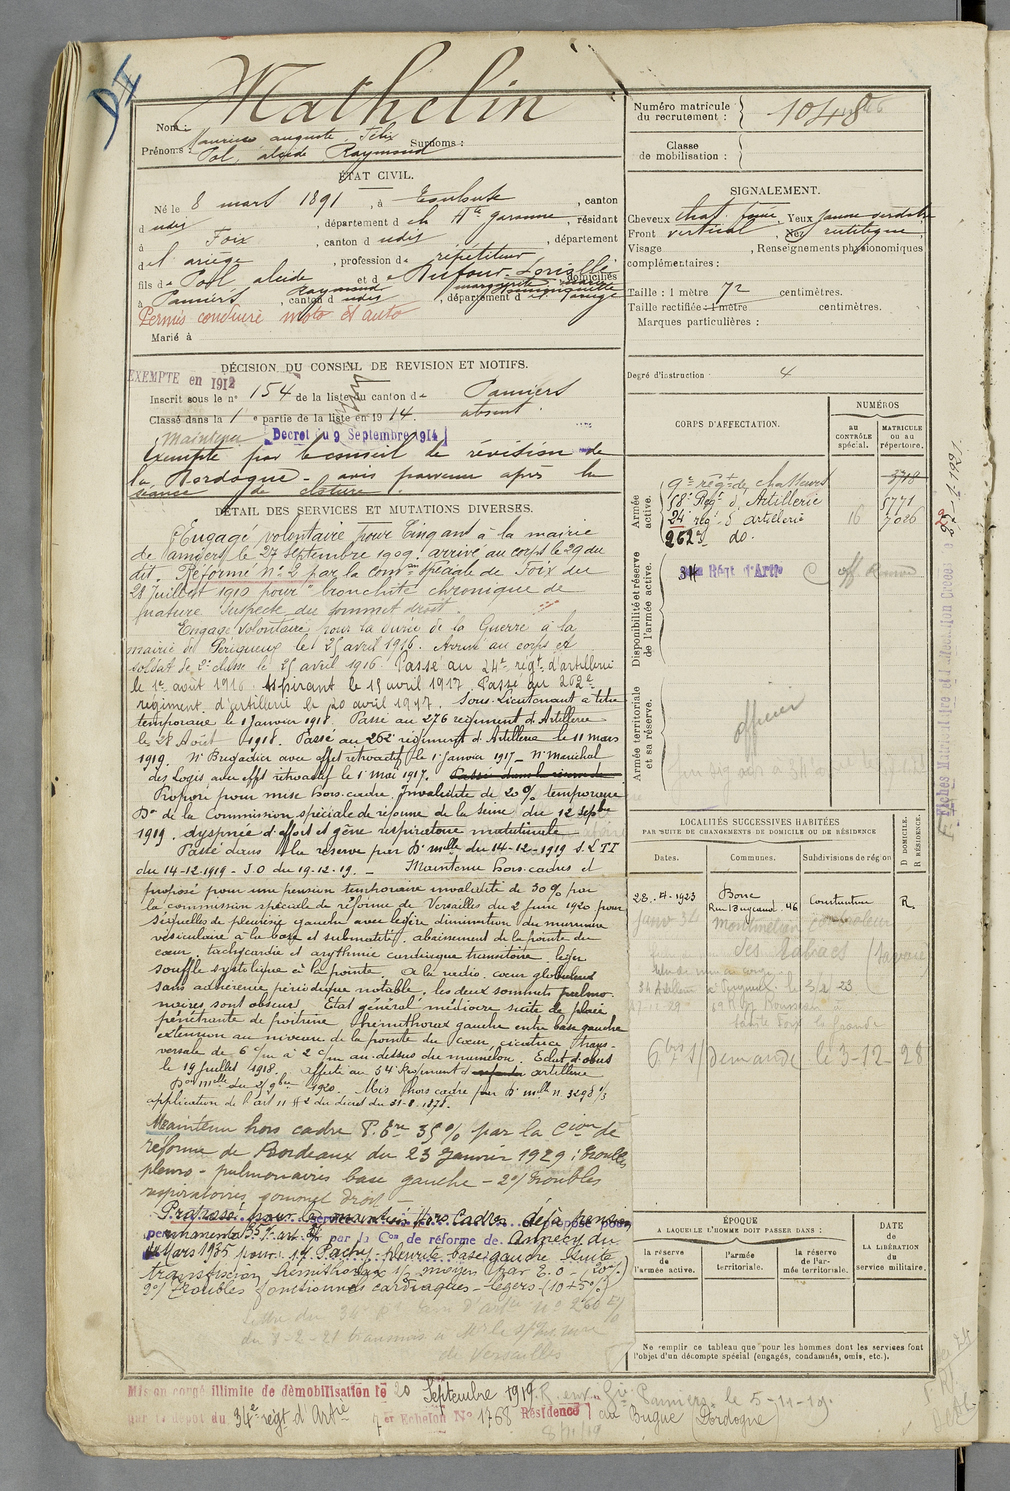 DI
Mathelin
Nom :
Prénoms : Maurice auguste Félix Surnoms :
Pol, alcide Raymond
ÉTAT CIVIL.
Né le 8 mars 1891, à Toulouse, canton
d udis, département d e la Hte garonne, résidant
à Foix, canton d udis, département
d e l'ariège, profession de répétiteur
fils de Pol, alcide Raymond et de Dufour Loriallé marguerite, domiciliés
à Pamiers, canton d udis, département d e l'ariège
Permis conduire moto et auto
Marié à
DÉCISION DU CONSEIL DE REVISION ET MOTIFS.
EXEMPTE en 1912
Inscrit sous le n° 154 de la liste du canton de Pamiers
Classé dans la 1e partie de la liste en 1914. absent.
Maintenu [Decret du 9 Septembre 1914]
Exempté par le conseil de révision de
la Dordogne - avis parvenu après la
séance de cloture.
DÉTAIL DES SERVICES ET MUTATIONS DIVERSES.
Engagé volontaire pour cinq ans à la mairie
de Pamiers le 27 septembre 1909. arrivé au corps le 29 du
dit. Réformé N° 2 par la Comon spéciale de Foix du
28 juillet 1910 pour "bronchite chronique de
nature suspecte du sommet droit.
Engagé volontaire pour la durée de la Guerre à la
mairie de Périgueux le 25 avril 1916. Arrivé au corps et
soldat de 2e classe le 25 avril 1916. Passé au 24e régt d'artillerie
le 1er août 1916. Aspirant le 15 avril 1917. Passé au 262e
régiment d'artillerie le 20 avril 1917. Sous-Lieutenant à titre
temporaire le 1 Janvier 1918. Passé au 276 régiment d'Artillerie
le 28 Août 1918. Passé au 262e régiment d'Artillerie le 11 mars
1919. Né Brigadier avec effet rétroactif le 1er Janvier 1917 - Né Maréchal
des Logis avec effet rétroactif le 1er Mai 1917.
Proposé pour mise hors cadre Invalidité de 20 % temporaire
Don de la Commission spéciale de réforme de la Seine du 12 Septbre
1919. dyspnée d'effort et gêne respiratoire matutinale
Passé dans la réserve par Dn mlle du 14-12-1919 S.L.T.T
du 14-12-1919 - J.O du 19-12-19. - Maintenu hors cadres et
proposé pour une pension temporaire invalidité de 30 % par
la commission spéciale de réforme de Versailles du 2 juin 1920 pour
séquelles de pleurésie gauche avec légère diminution du murmure
vésiculaire à la base et submatité, abaissement de la pointe du
cœur, tachycardie et arythmie cardiaque transitoire, léger
souffle systolique à la pointe. A la radio cœur globuleux
sans adhérence périodique notable, les deux sommets pulmo-
naires sont obscurs. Etat général médiocre suite de plaie
pénétrante de poitrine, hémithorax gauche entre base gauche
extension au niveau de la pointe du cœur, cicatrice trans-
versale de 6 c/m à 2 c/m au-dessus du mamelon. Eclat d'obus
le 19 juillet 1918. Affecté au 34e Régiment d'artillerie
Don mlle du 25 9bre 1920. Mis hors cadre par Dn mlle n 3298 1/3
application de l'art 11 § 2 du décret du 31-8-1878.
Maintenu hors cadre P. Ere 35 % par la Cion de
réforme de Bordeaux du 23 Janvier 1929 : troubles
pleuro-pulmonaires base gauche - 2°/ troubles
respiratoires sommet droit -
Proposé pour maintien hors cadres déjà pension
permanente 35 % par la Con de réforme de Annecy du
Mars 1935 pour : 1°/ Pachy-pleurite base gauche suite
transfixion hémithorax
2°/ Troubles fonctionnels cardiaques - légers (10+5%)
de Versailles
Mis en congé illimité de démobilisation le 20 Septembre 1919
par le dépôt du 34e régt d'Artie 7er Echelon N° 1768 Résidence au Bugue (Dordogne)
gie Pamiers. le 5-11-19.
Numéro matricule du recrutement : 1048
Classe de mobilisation :
SIGNALEMENT.
Cheveux chat. foncé, Yeux jaune verdatre
Front vertical, Nez rectiligne
Visage, Renseignements physionomiques
complémentaires :
Taille : 1 mètre 72 centimètres.
Taille rectifiée : 1 mètre centimètres.
Marques particulières :
Degré d'instruction 4
CORPS D'AFFECTATION.
NUMÉROS
AU CONTRÔLE spécial.
MATRICULE OU AU répertoire.
Armée active.
9e régt de chasseurs 3718
58e Régt d'Artillerie 5771
24 régt d'artillerie 16 7026
262e do.
Disponibilité et réserve de l'armée active.
34 Régt d'Artie
Armée territoriale et sa réserve.
officier
LOCALITÉS SUCCESSIVES HABITÉES
PAR SUITE DE CHANGEMENTS DE DOMICILE OU DE RÉSIDENCE
D DOMICILE.
R RÉSIDENCE.
Dates.
Communes.
Subdivisions de région
23-4-1923 Bone Rue Bugeaud 46 Constantine R.
Janv 34 Montmélian controleur
des Tabacs (Savoie)
Sainte Foix la Grande
Demande le 3-12-28
ÉPOQUE
A LAQUELLE L'HOMME DOIT PASSER DANS :
la réserve de l'armée active.
l'armée territoriale.
la réserve de l'armée territoriale.
DATE de LA LIBÉRATION du service militaire.
Ne remplir ce tableau que pour les hommes dont les services font
l'objet d'un décompte spécial (engagés, condamnés, omis, etc.).